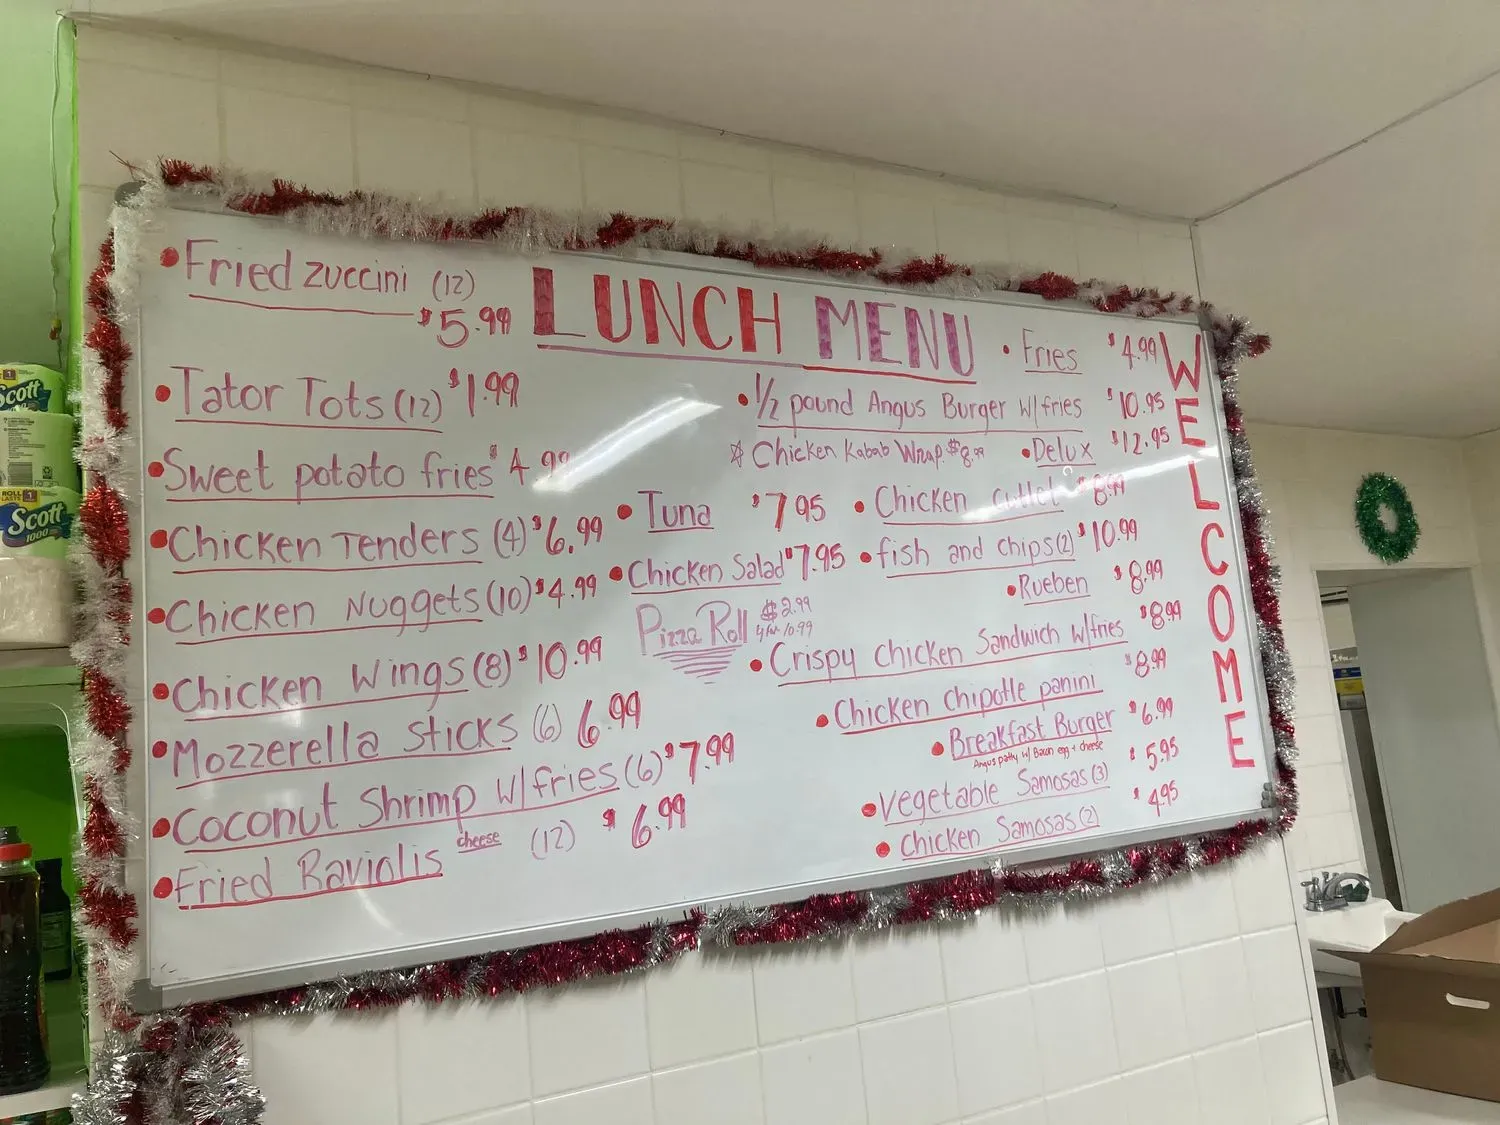 LUNCH MENU
WELCOME
• Fried Zuccini (12)
$5.99
• Tator Tots (12) $1.99
• Sweet potato fries $4.99
• Chicken Tenders (4) $6.99
• Chicken Nuggets (10) $4.99
• Chicken Wings (8) $10.99
• Mozzerella Sticks (6) 6.99
• Coconut Shrimp w/fries (6) $7.99
• Fried Raviolis cheese (12) $6.99
• Tuna $7.95
• Chicken Salad $7.95
Pizza Roll $2.99
4/for 10.99
• Fries $4.99
• 1/2 pound Angus Burger w/fries $10.95
☆ Chicken Kabab Wrap $8.99
• Delux $12.95
• Chicken Cutlet $8.99
• fish and chips (2) $10.99
• Rueben $8.99
• Crispy chicken Sandwich w/fries $8.99
• Chicken chipotle panini $8.99
• Breakfast Burger $6.99
Angus patty w/ Bacon egg + cheese
• Vegetable Samosas (3) $5.95
• Chicken Samosas (2) $4.95
Scott
ROLL LASTS
1
Scott
1000